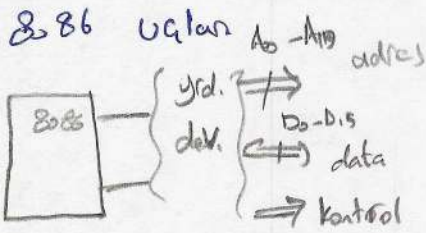 8086 uçları
A0 - A19
adres
8086
yrd.
dev.
D0 - D15
data
kontrol